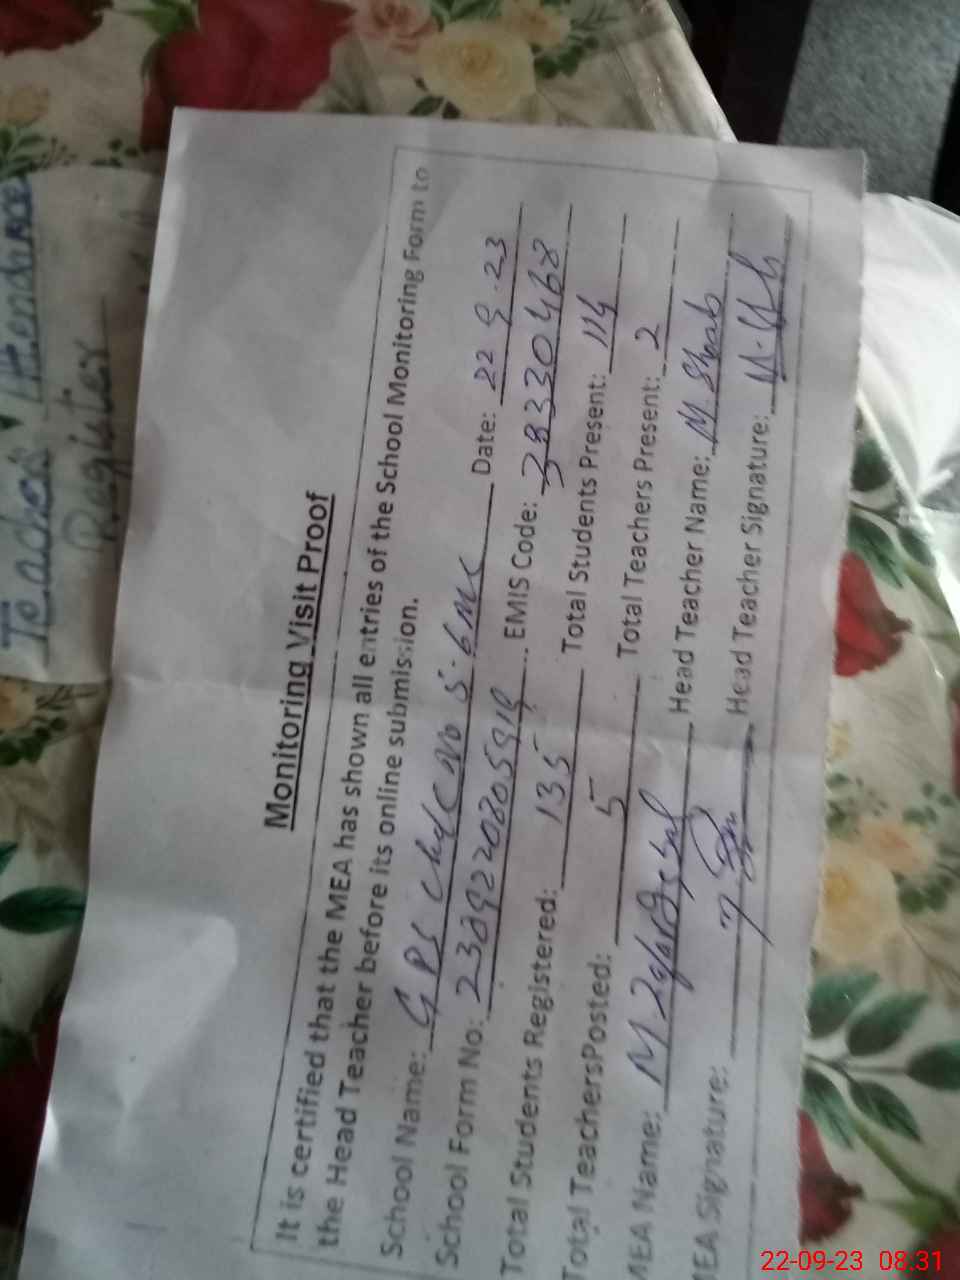 Teacher Attendance
Register
Monitoring Visit Proof
It is certified that the MEA has shown all entries of the School Monitoring Form to
the Head Teacher before its online submission.
School Name: GPS Chak No 5-6 Date: 22 9-23
School Form No: EMIS Code: 38330468
Total Students Registered: 135 Total Students Present: 114
Total TeachersPosted: 5 Total Teachers Present: 2
MEA Name: M Head Teacher Name: M.
MEA Signature: Head Teacher Signature:
22-09-23 08.31